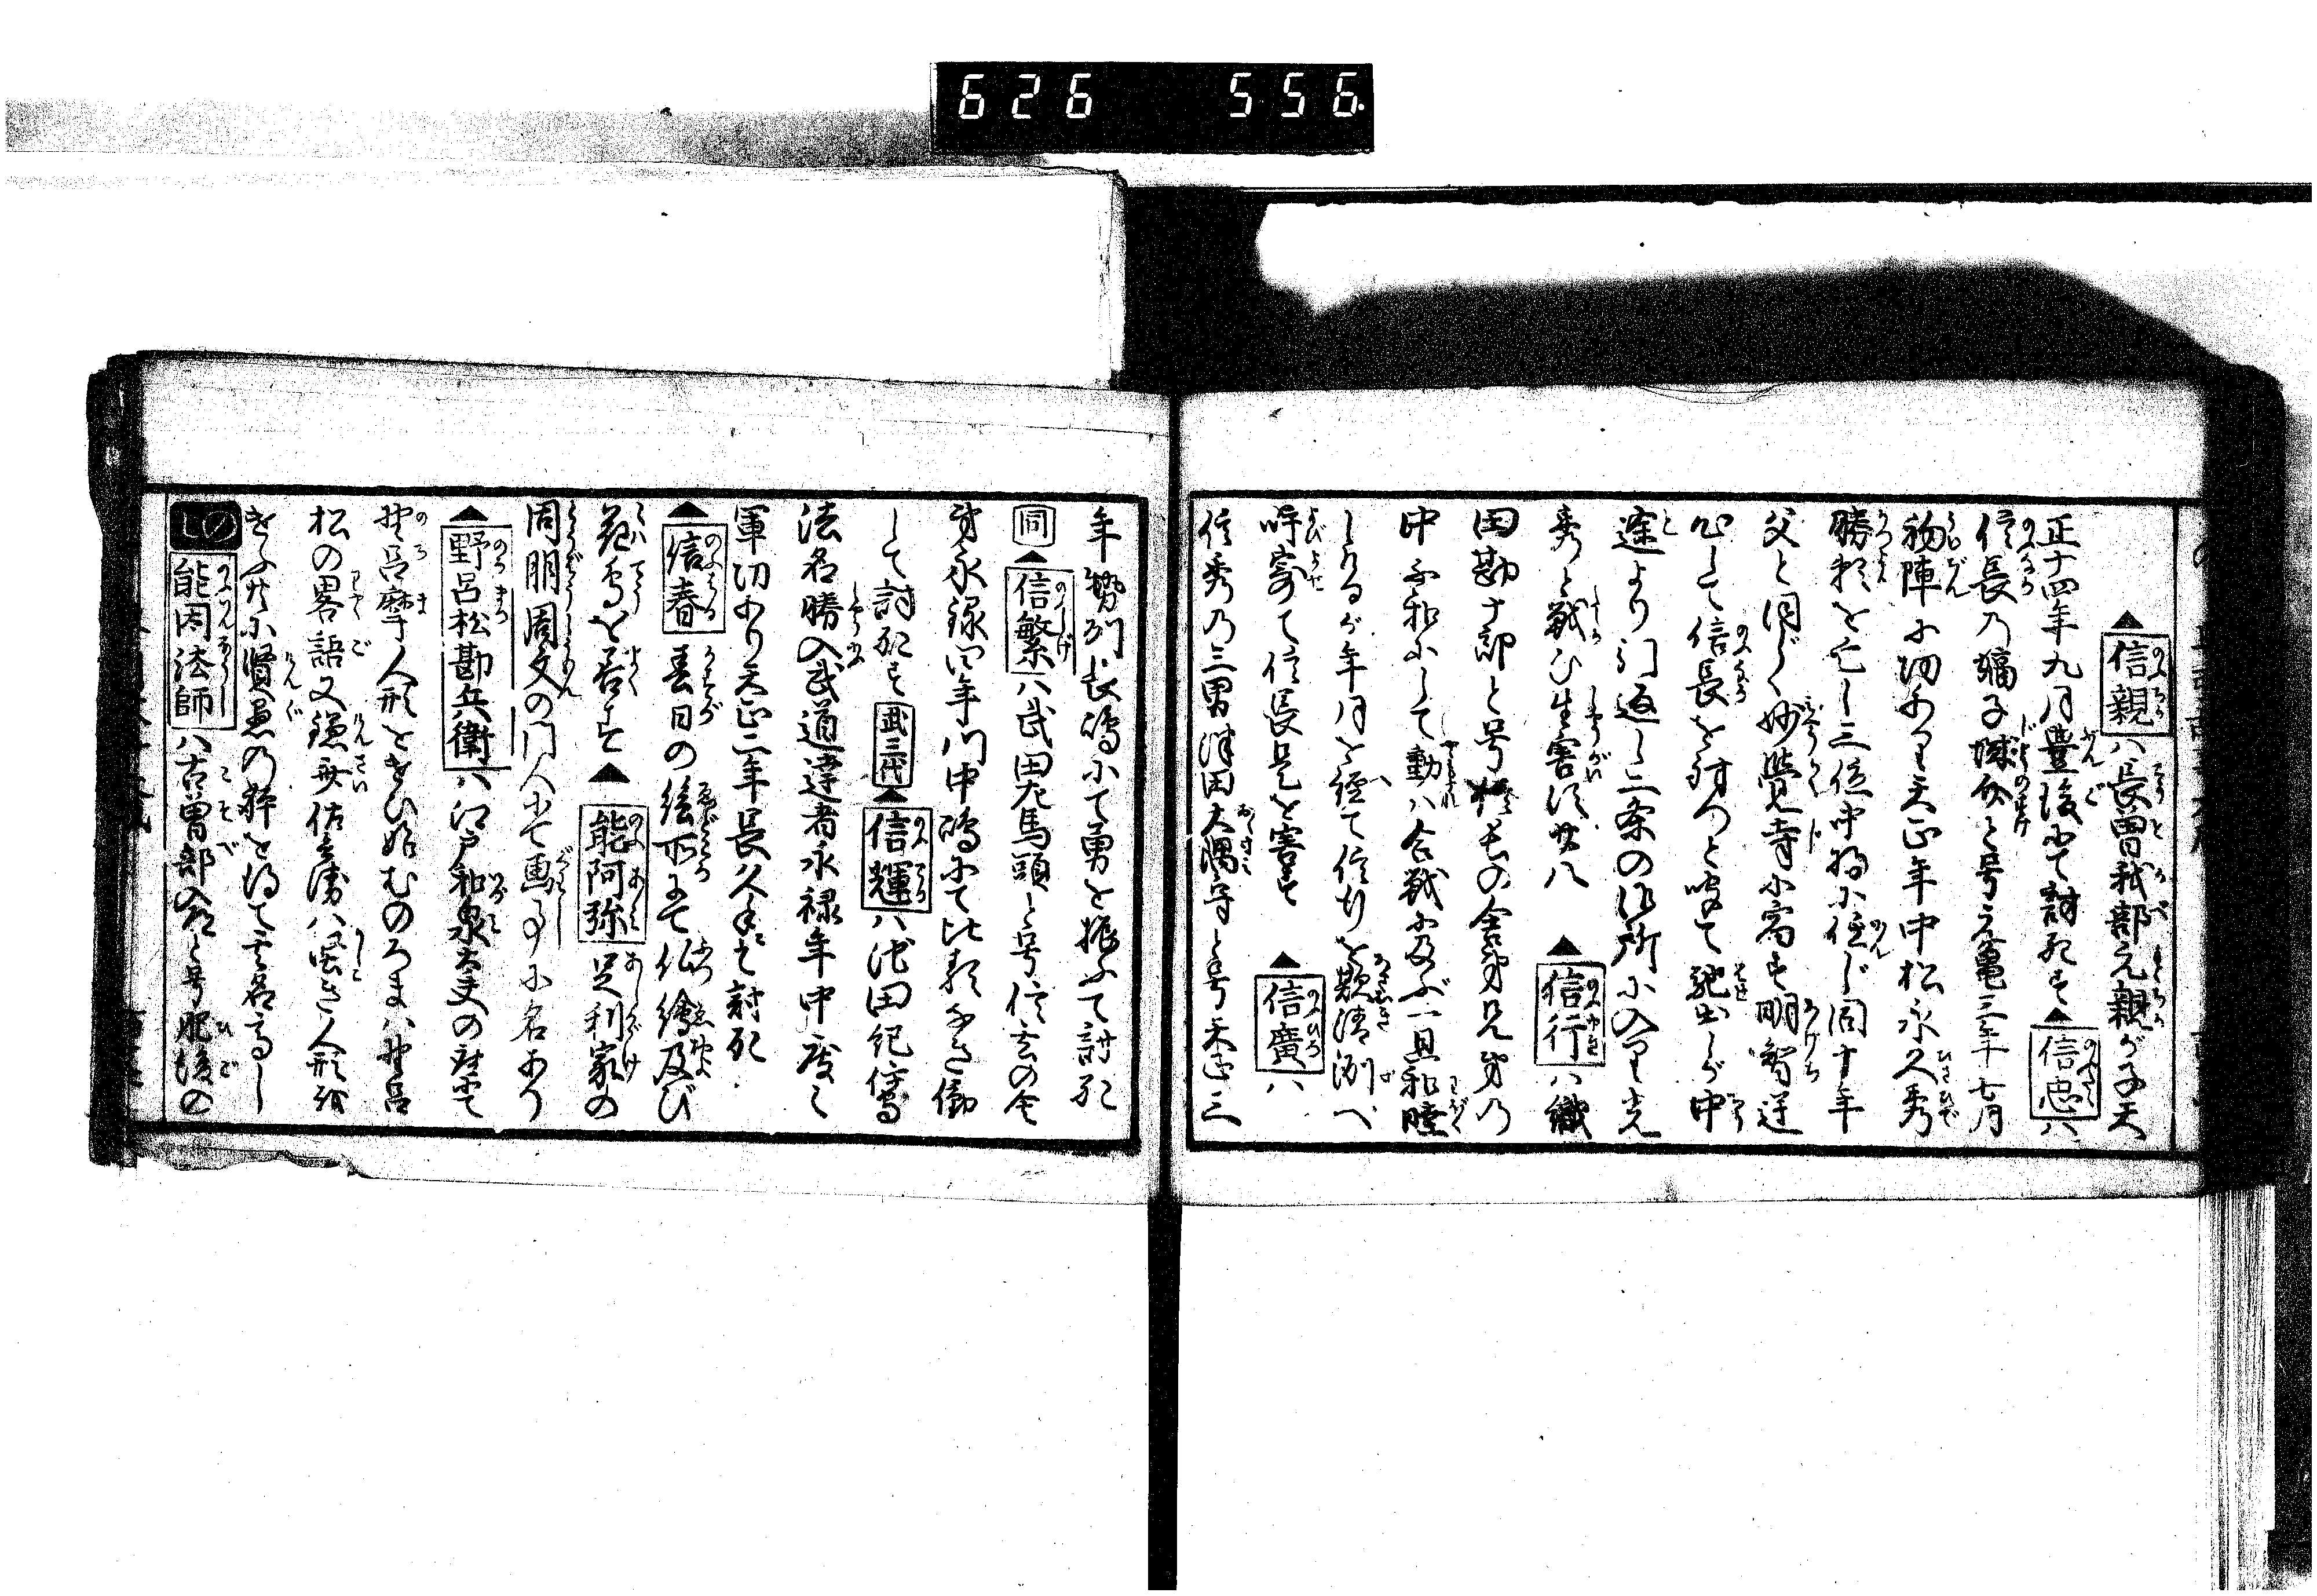 626 556.
▲信親ハ長曽我部元親が子天
正十四年九月豊後にて討死す▲信忠ハ
信長の嫡子城介と号元亀三年七月
初陣に功あり天正年中松永久秀
勝頼を亡し三位中将に任じ同十年
父と同じく妙覚寺に寓す明智逆
心して信長を討つと聞て馳出しが中
途より引返し二条の御所に入り光
秀と戦ひ生害す廿八▲信行ハ織
田勘十郎と号信長の舎弟兄弟の
中不和にして動ハ合戦に及ぶ一旦和睦
しけるが年月を経て信行を欺清洲へ
呼寄て信長是を害す▲信廣ハ
信秀の三男津田大隅守と号天正三
年勢州長嶋にて勇を振ふて討死
同▲信繁ハ武田左馬頭と号信玄の舎
弟永禄四年川中嶋にて比類なき働
して討死す武三代▲信輝ハ池田紀伊守
法名勝入武道達者永禄年中度々
軍功あり天正二年長久手にて討死
▲信春春日の絵所にて仏絵及び
花鳥を善す▲能阿弥足利家の
同朋周文の門人にて画事に名あり
▲野呂松勘兵衛ハ江戸和泉太夫の座にて
野呂麻人形をつかひ始むのろまハ野呂
松の略語又鎌斎佐兵衛ハ賢き人形を
つかふ共に賢愚の体を得て云名高し
能因法師ハ古曽部入道と号肥後の